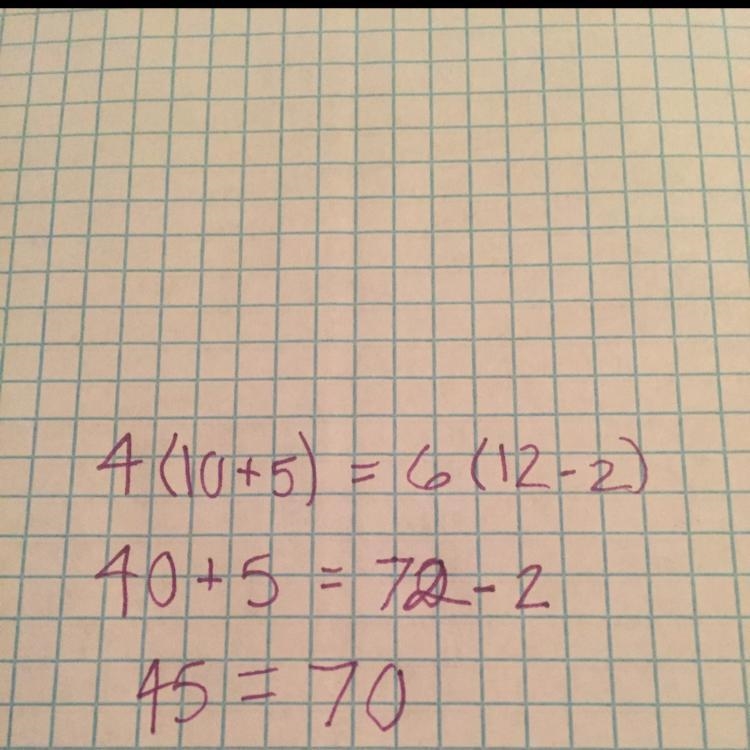 4(10+5) = 6(12-2)
40+5 = 72-2
45 = 70